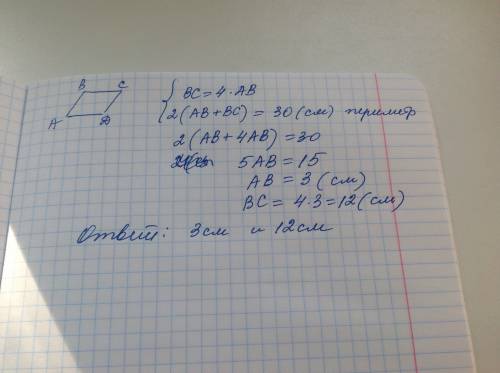 B C
A D
BC = 4 · AB
2(AB + BC) = 30 (см) периметр
2(AB + 4AB) = 30
5AB = 15
AB = 3 (см)
BC = 4 · 3 = 12 (см)
Ответ: 3 см и 12 см